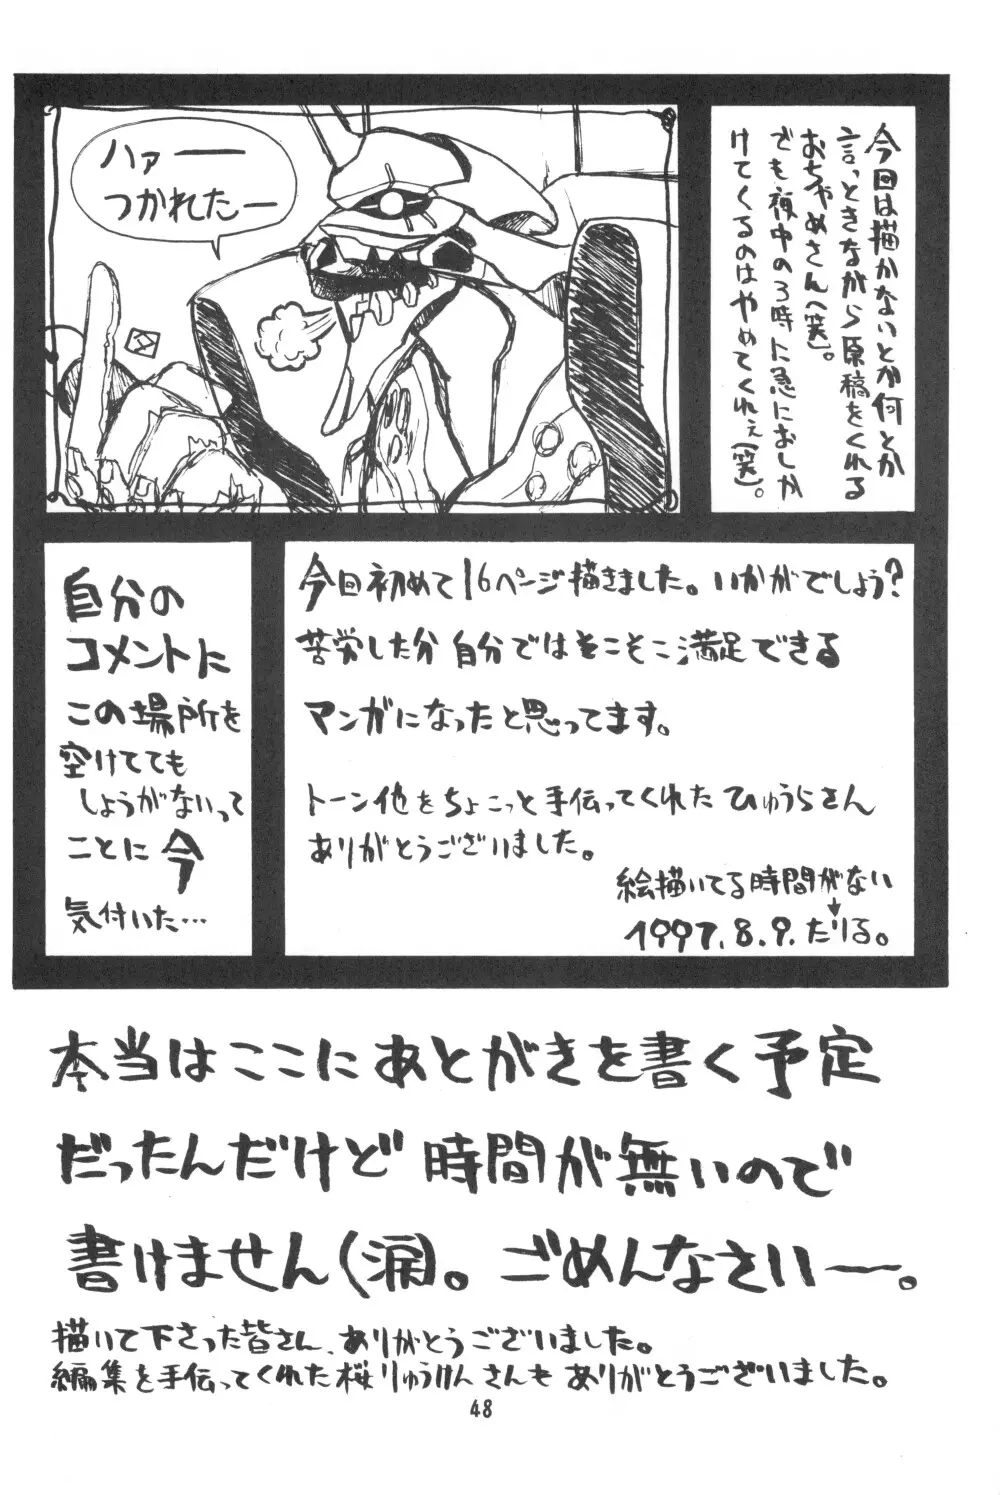 今回は描かないとか何とか
言っときながら原稿をくれる
おちゃめさん(笑)。
でも夜中の3時に急におしか
けてくるのはやめてくれぇ(笑)。
ハァー
つかれたー
今回初めて16ページ描きました。いかがでしょう?
苦労した分自分ではそこそこ満足できる
マンガになったと思ってます。
トーン他をちょこっと手伝ってくれたひゅうらさん
ありがとうございました。
絵描いてる時間がない
↓
1997.8.9.たりる。
自分の
コメントに
この場所を
空けてても
しょうがないって
ことに今
気付いた…
本当はここにあとがきを書く予定
だったんだけど時間が無いので
書けません(涙)。ごめんなさいー。
描いて下さった皆さん、ありがとうございました。
編集を手伝ってくれた桜りゅうけんさんもありがとうございました。
48